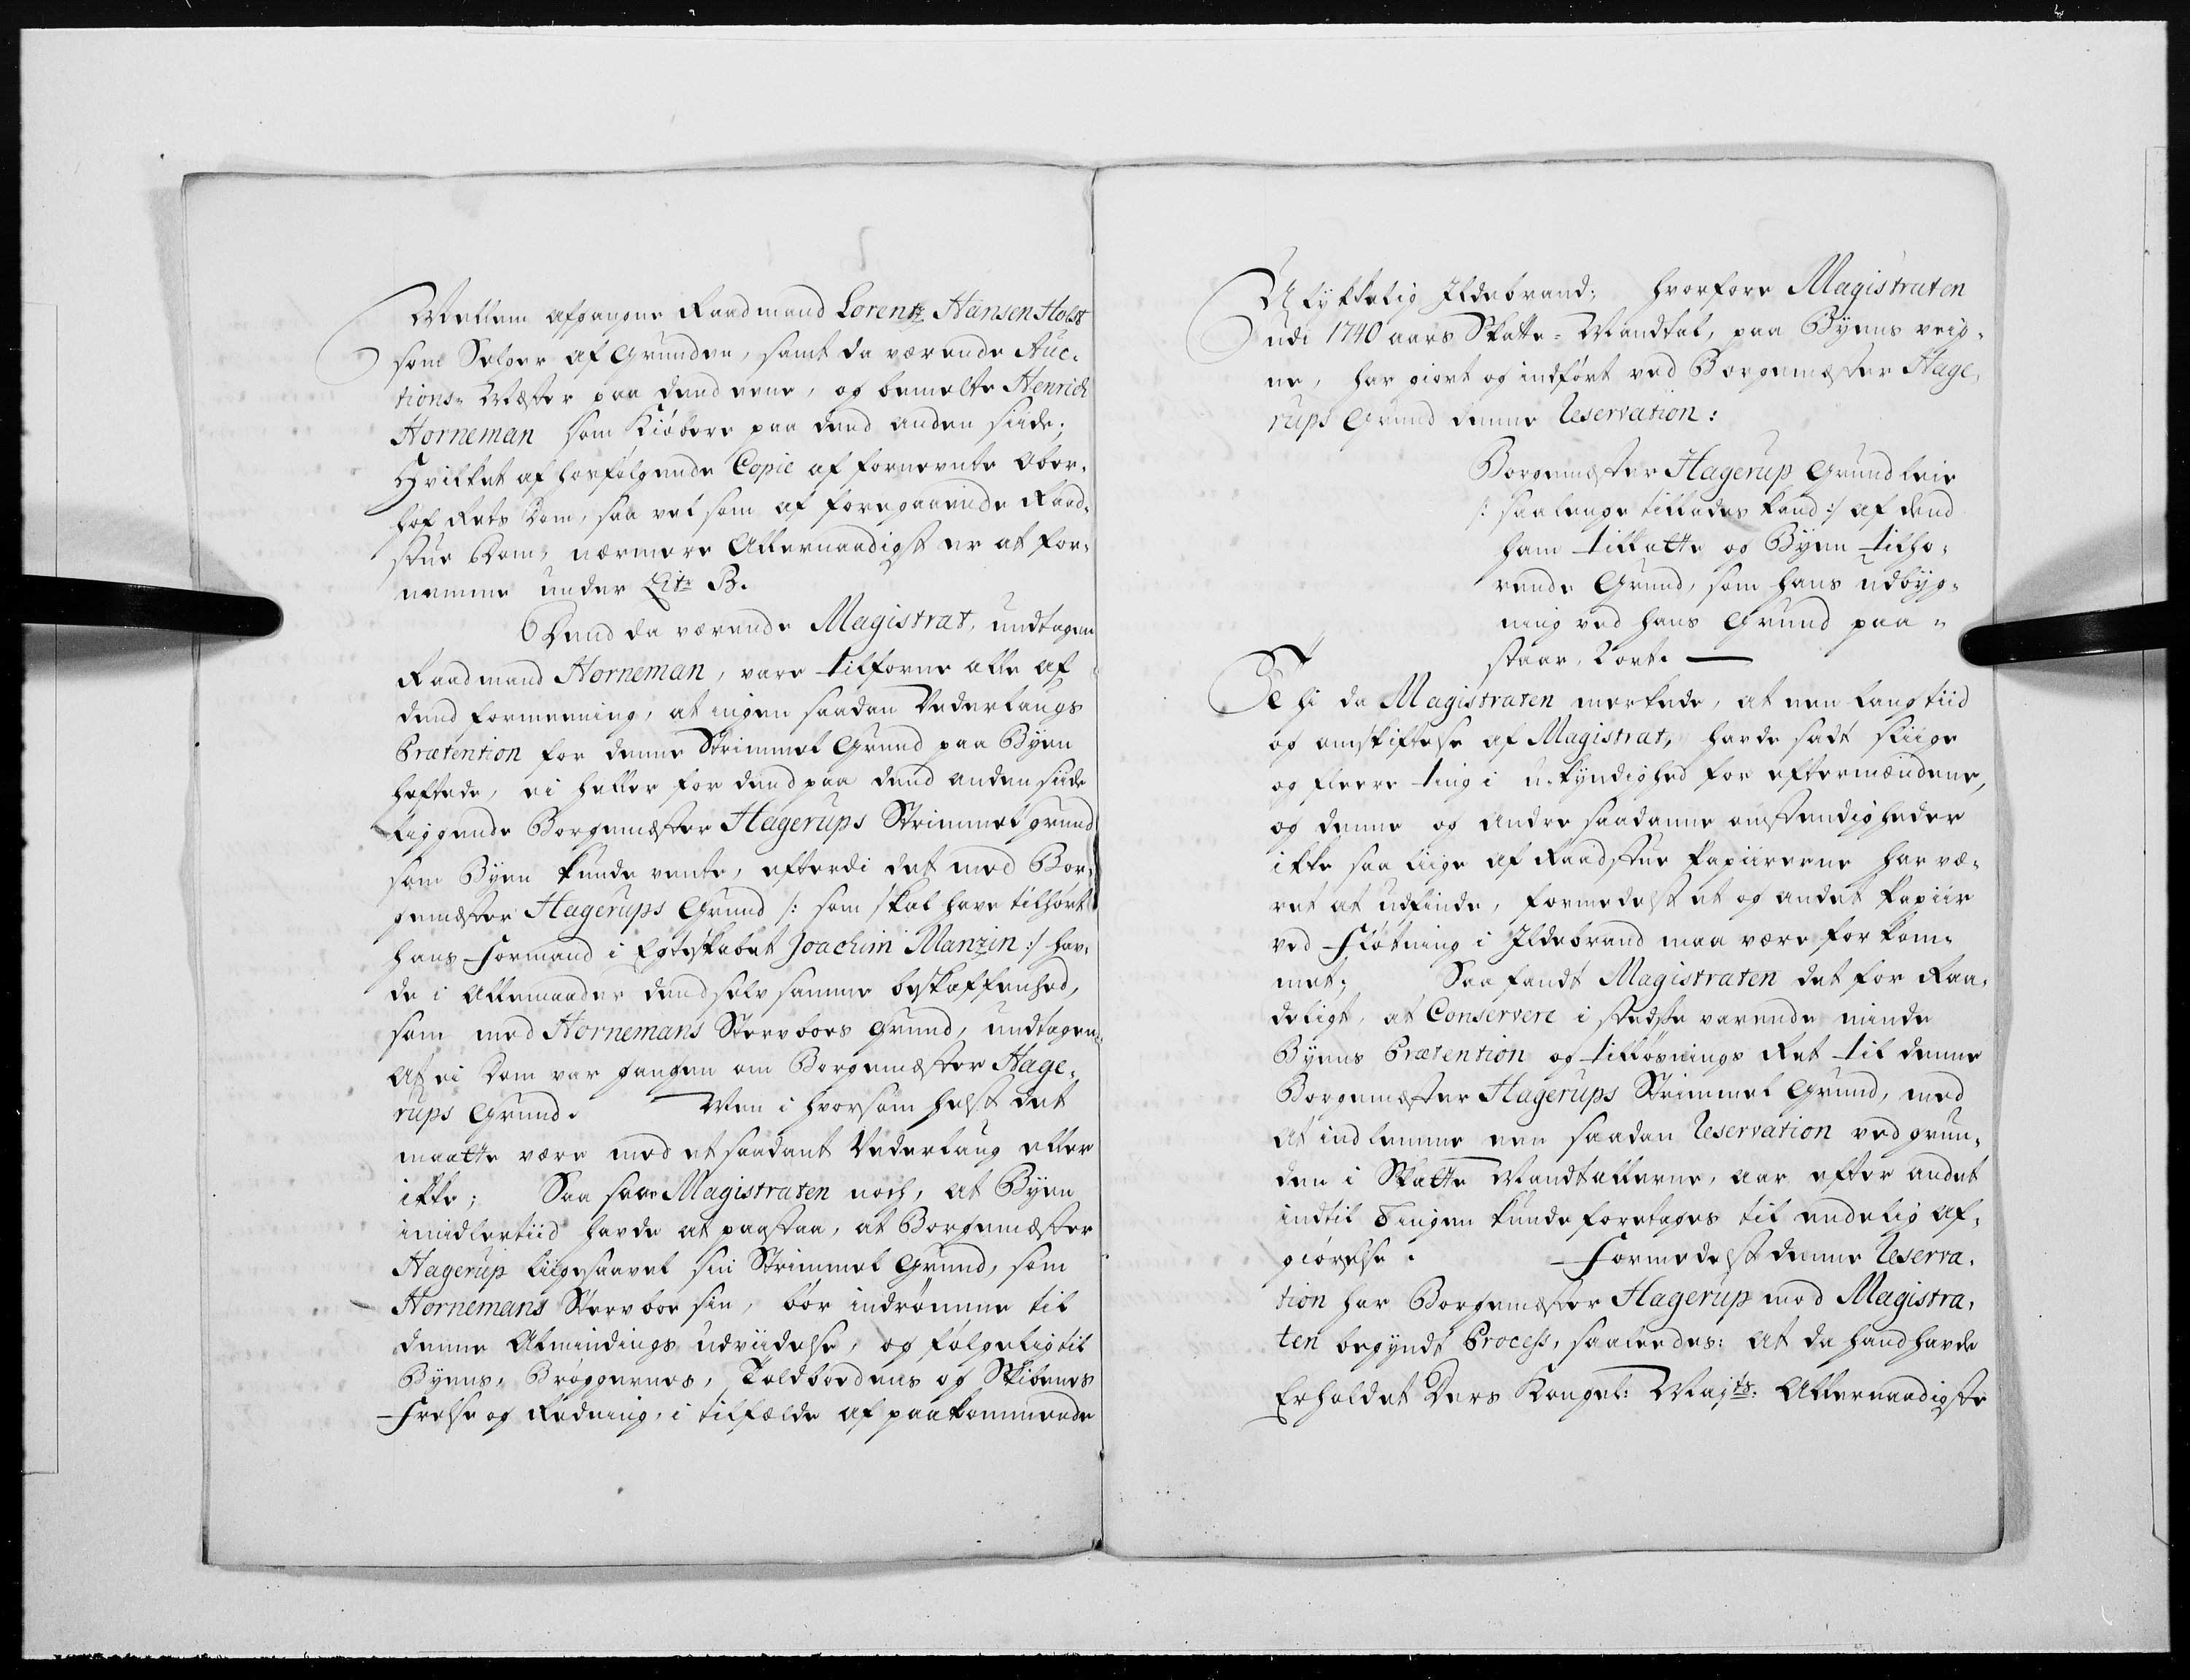 Mellem afgangne Raadmand Lorentz Hansen Holst
som Selger af Grunden, samt da værende Auc-
tions-Mæster paa dend eene, og bemelte Henrich
Horneman som Kiøbere paa dend anden siide;
Hvilket af hosfølgende Copie af fornevnte Ober-
hof Rets Dom, saa vel som af foregaaende Raad-
stue Dom, nærmere Allernaadigst er at for-
nemme under Litr B.
Dend da værende Magistrat, undtagen
Raadmand Horneman, vare tilforne alle af
dend formeening, at ingen saadan Vederlaugs
Prætention for denne Strimmel Grund paa Byen
heftede, ei heller for dend paa dend anden siide
liggende Borgemæster Hagerups Strimmel grund
som Byen kunde vente, efterdi det med Bor-
gemæster Hagerups Grund /: som skal have tilhørt
hans Formand i Egteskabet Joachim Manzin :/ hav-
de i Allemaader dend selv samme beskaffenhed,
som med Hornemans Stervboes Grund, undtagen
at ei Dom var gangen om Borgemæster Hage-
rups Grund. Men i hvorsom helst det
maatte være med et saadant Vederlaug eller
ikke; Saa saae Magistraten noch, at Byen
imidlertiid havde at paastaa, at Borgemæster
Hagerup liigesaavel sin Strimmel Grund, som
Hornemans Stervboe sin, bør indrømme til
denne Almindings udviidelse, og følgelig til
Byens, Bryggernes, Toldbodens og Skibenes
Frelse og Redning, i tilfælde af paakommende
Ulykkelig Ildebrand; hvorfore Magistraten
udi 1740 aars Skatte-Mandtal, paa Byens veig-
ne, har giort og indført ved Borgemæster Hage-
rups Grund denne Reservation:
Borgemæster Hagerup Grundleie
/: saalenge tillades kand :/ af dend
ham tillatte og Byen tilhø-
rende Grund, som hans udbyg-
ning ved hans Grund paa-
staar, 1 ort. —
Thi da Magistraten merkede, at een lang tiid
og omskiftelse af Magistrat, havde sadt sliige
og fleere ting i u-kyndighed for eftermændene,
og denne og andre saadanne omstendigheder
ikke saa liige af Raadstue Papiirerne har væ-
ret at udfinde, formedelst et og andet Papiir
ved Fløtning i Ildebrand maa være forkom-
met; Saa fandt Magistraten det for Raa-
deligt, at Conservere i stedse varende minde
Byens Prætention og tilløsnings Ret til denne
Borgemæster Hagerups Strimmel Grund, med
at indlemme een saadan Reservation ved grun-
den i Skatte Mandtallerne, aar efter andet
indtil Tingen kunde foretages til endelig af-
giørelse. Formedelst denne Reserva-
tion har Borgemæster Hagerup mod Magistra-
ten begyndt Process, saaleedes: at da hand havde
Erholdet Ders Kongel: Majts. Allernaadigste